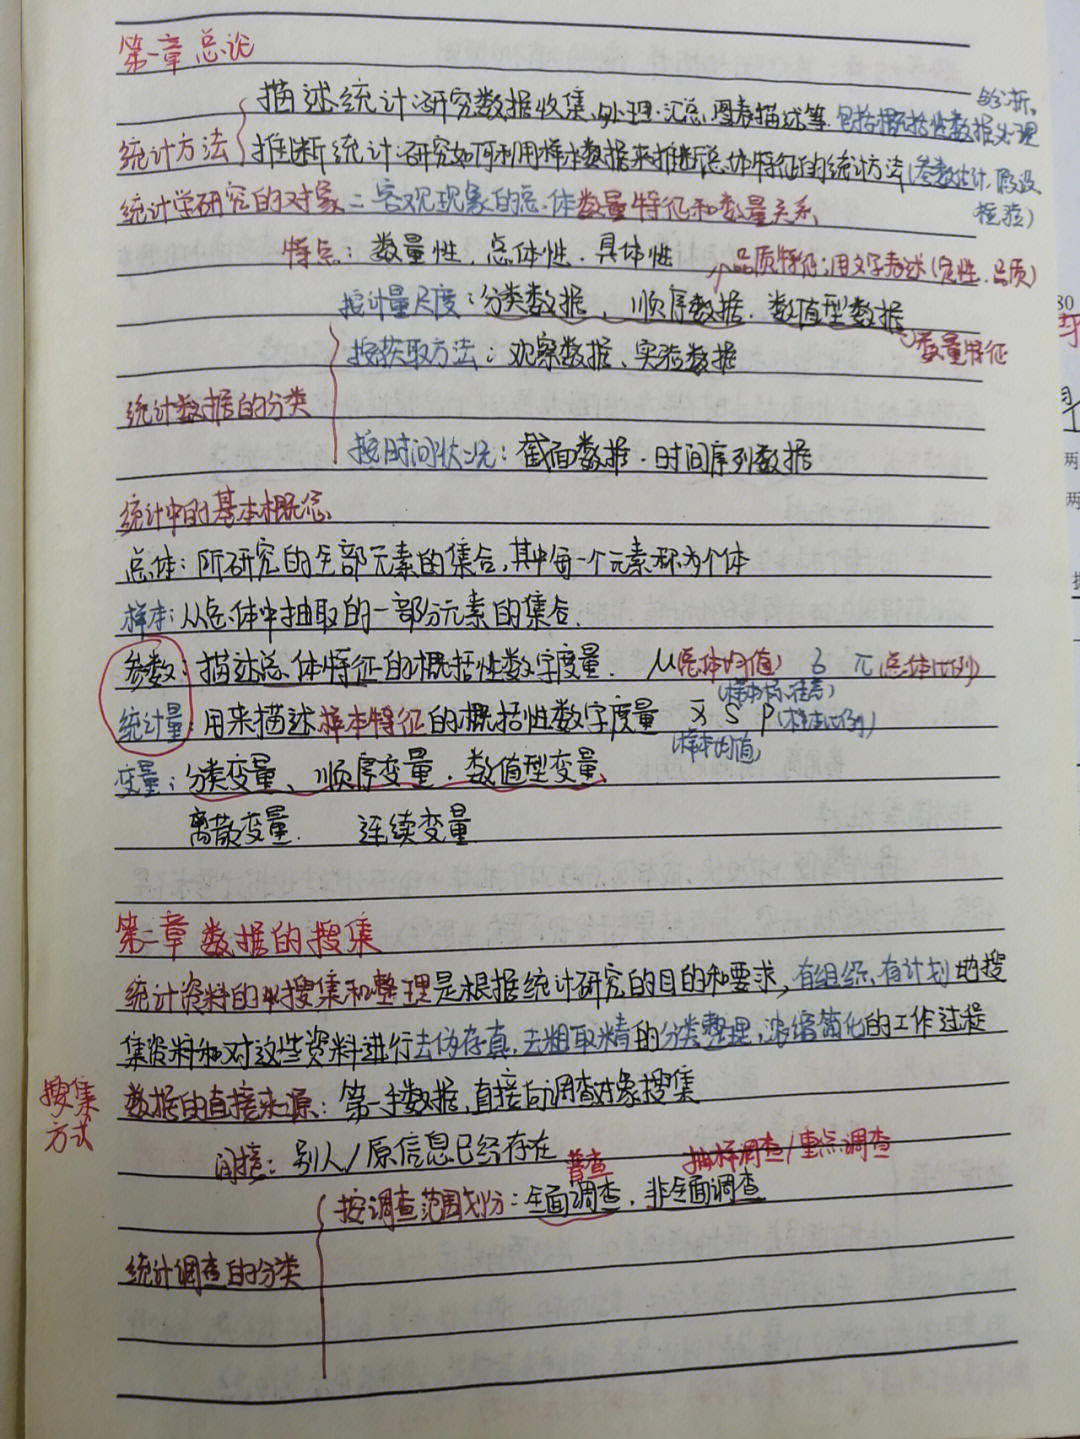 第一章 总论
描述统计:研究数据收集、处理、汇总、图表描述等. 包括概括性数据处理
与分析.
统计方法
推断统计:研究如何利用样本数据来推断总体特征的统计方法(参数估计、假设
检验)
统计学研究的对象:客观现象的总体数量特征和数量关系
特点:数量性、总体性、具体性
品质特征:用文字表述(定性、品质)
按计量尺度:分类数据、顺序数据、数值型数据
数量特征
按获取方法:观察数据、实验数据
统计数据的分类
按时间状况:截面数据、时间序列数据
统计中的基本概念
总体:所研究的全部元素的集合,其中每一个元素称为个体
样本:从总体中抽取的一部分元素的集合.
参数:描述总体特征的概括性数字度量. μ(总体均值) δ π(总体比例)
(样本标准差)
统计量:用来描述样本特征的概括性数字度量 x̄ S P(样本比例)
(样本均值)
变量:分类变量、顺序变量、数值型变量
离散变量. 连续变量
第二章 数据的搜集
统计资料的搜集和整理是根据统计研究的目的和要求,有组织、有计划地搜
集资料和对这些资料进行去伪存真、去粗取精的分类整理,浓缩简化的工作过程
搜集
方式
数据的直接来源:第一手数据,直接向调查对象搜集
间接:别人/原信息已经存在
普查 抽样调查/重点调查
按调查范围划分:全面调查、非全面调查
统计调查的分类
80
两
两